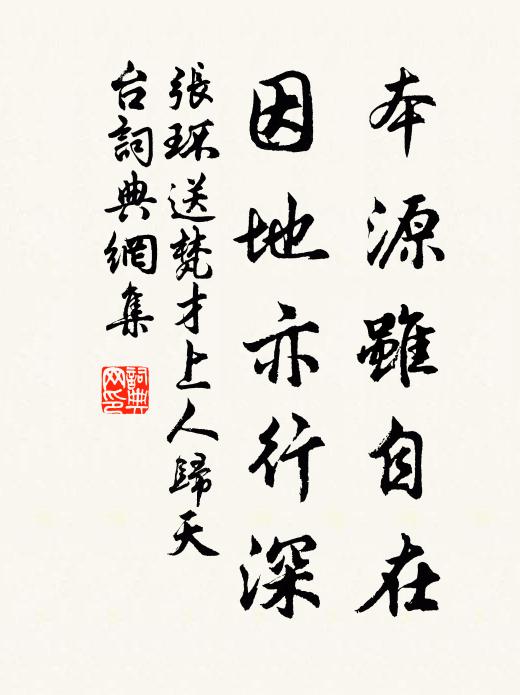 本源雖自在
因地亦行深
張琛送梵才上人歸天
台詞典網集
詞典
网印